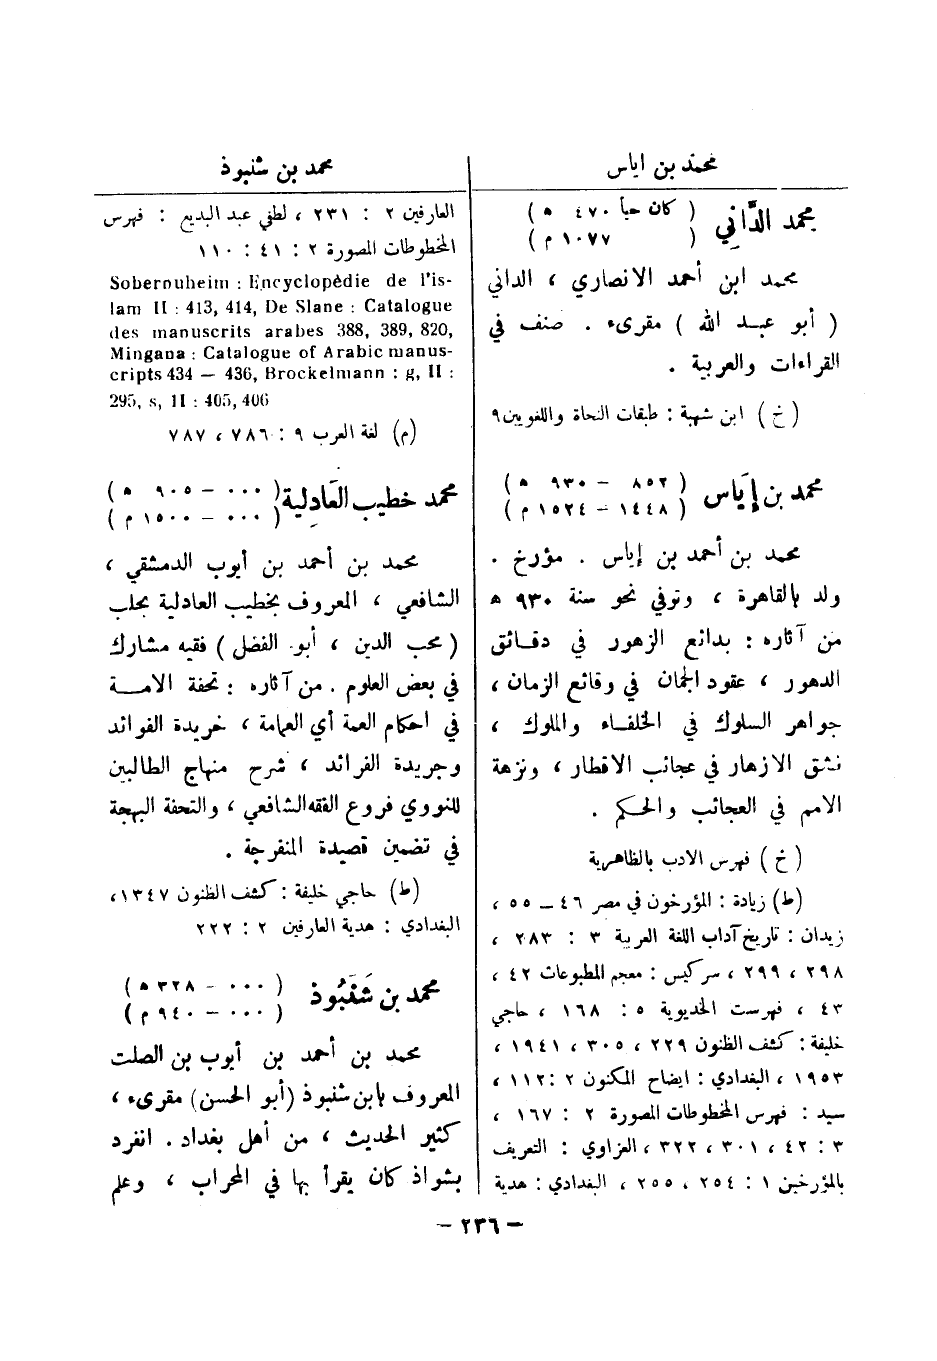 محمد بن اياس
محمد الدَّاني ( كان حيا ٤٧٠ ه )
( ١٠٧٧ م )
محمد ابن أحمد الانصاري ، الداني
( أبو عبد الله ) مقرىء . صنف في
القراءات والعربية .
(خ) ابن شهبة : طبقات النحاة واللغويين ٩
محمد بن إيَاس ( ٨٥٢ – ٩٣٠ ه )
( ١٤٤٨ – ١٥٢٤ م )
محمد بن أحمد بن إياس . مؤرخ .
ولد بالقاهرة ، وتوفي نحو سنة ٩٣٠ ه
من آثاره : بدائع الزهور في دقائق
الدهور ، عقود الجمان في وقائع الزمان ،
جواهر السلوك في الخلفاء والملوك ،
نشق الازهار في عجائب الاقطار ، ونزهة
الامم في العجائب والحكم .
(خ) فهرس الادب بالظاهرية
(ط) زيادة : المؤرخون في مصر ٤٦ – ٥٥ ،
زيدان : تاريخ آداب اللغة العربية ٣ : ٢٨٣ ،
٢٩٨ ، ٢٩٩ ، سركيس : معجم المطبوعات ٤٢ ،
٤٣ ، فهرست الخديوية ٥ : ١٦٨ ، حاجي
خليفة : كشف الظنون ٢٢٩ ، ٣٠٥ ، ١٩٤١ ،
١٩٥٣ ، البغدادي : ايضاح المكنون ٢ : ١١٢ ،
سيد : فهرس المخطوطات المصورة ٢ : ١٦٧ ،
٣ : ٤٢ ، ٣٠١ ، ٣٢٢ ، العزاوي : التعريف
بالمؤرخين ١ : ٢٥٤ ، ٢٥٥ ، البغدادي : هدية
محمد بن شنبوذ
العارفين ٢ : ٢٣١ ، لطفي عبد البديع : فهرس
المخطوطات المصورة ٢ : ٤١ : ١١٠
Sobernuheim : Encyclopèdie de l'is-
lam II : 413, 414, De Slane : Catalogue
des manuscrits arabes 388, 389, 820,
Mingana : Catalogue of Arabic manus-
cripts 434 — 436, Brockelmann : g, II :
295, s, II : 405, 406
(م) لغة العرب ٩ : ٧٨٦ ، ٧٨٧
محمد خطيب العَادِلية ( ٠٠٠ – ٩٠٥ ه )
( ٠٠٠ – ١٥٠٠ م )
محمد بن أحمد بن أيوب الدمشقي ،
الشافعي ، المعروف بخطيب العادلية بحلب
( محب الدين ، أبو الفضل ) فقيه مشارك
في بعض العلوم . من آثاره : تحفة الامة
في احكام العمة أي العمامة ، خريدة الفوائد
وجريدة الفرائد ، شرح منهاج الطالبين
للنووي في فروع الفقه الشافعي ، والتحفة البهجة
في تضمين قصيدة المنفرجة .
(ط) حاجي خليفة : كشف الظنون ١٣٤٧ ،
البغدادي : هدية العارفين ٢ : ٢٢٢
محمد بن شَنَبُوذ ( ٠٠٠ – ٣٢٨ ه )
( ٠٠٠ – ٩٤٠ م )
محمد بن أحمد بن أيوب بن الصلت
المعروف بابن شنبوذ (أبو الحسن) مقرىء ،
كثير الحديث ، من أهل بغداد . انفرد
بشواذ كان يقرأ بها في المحراب ، وعلم
– ٢٣٦ –